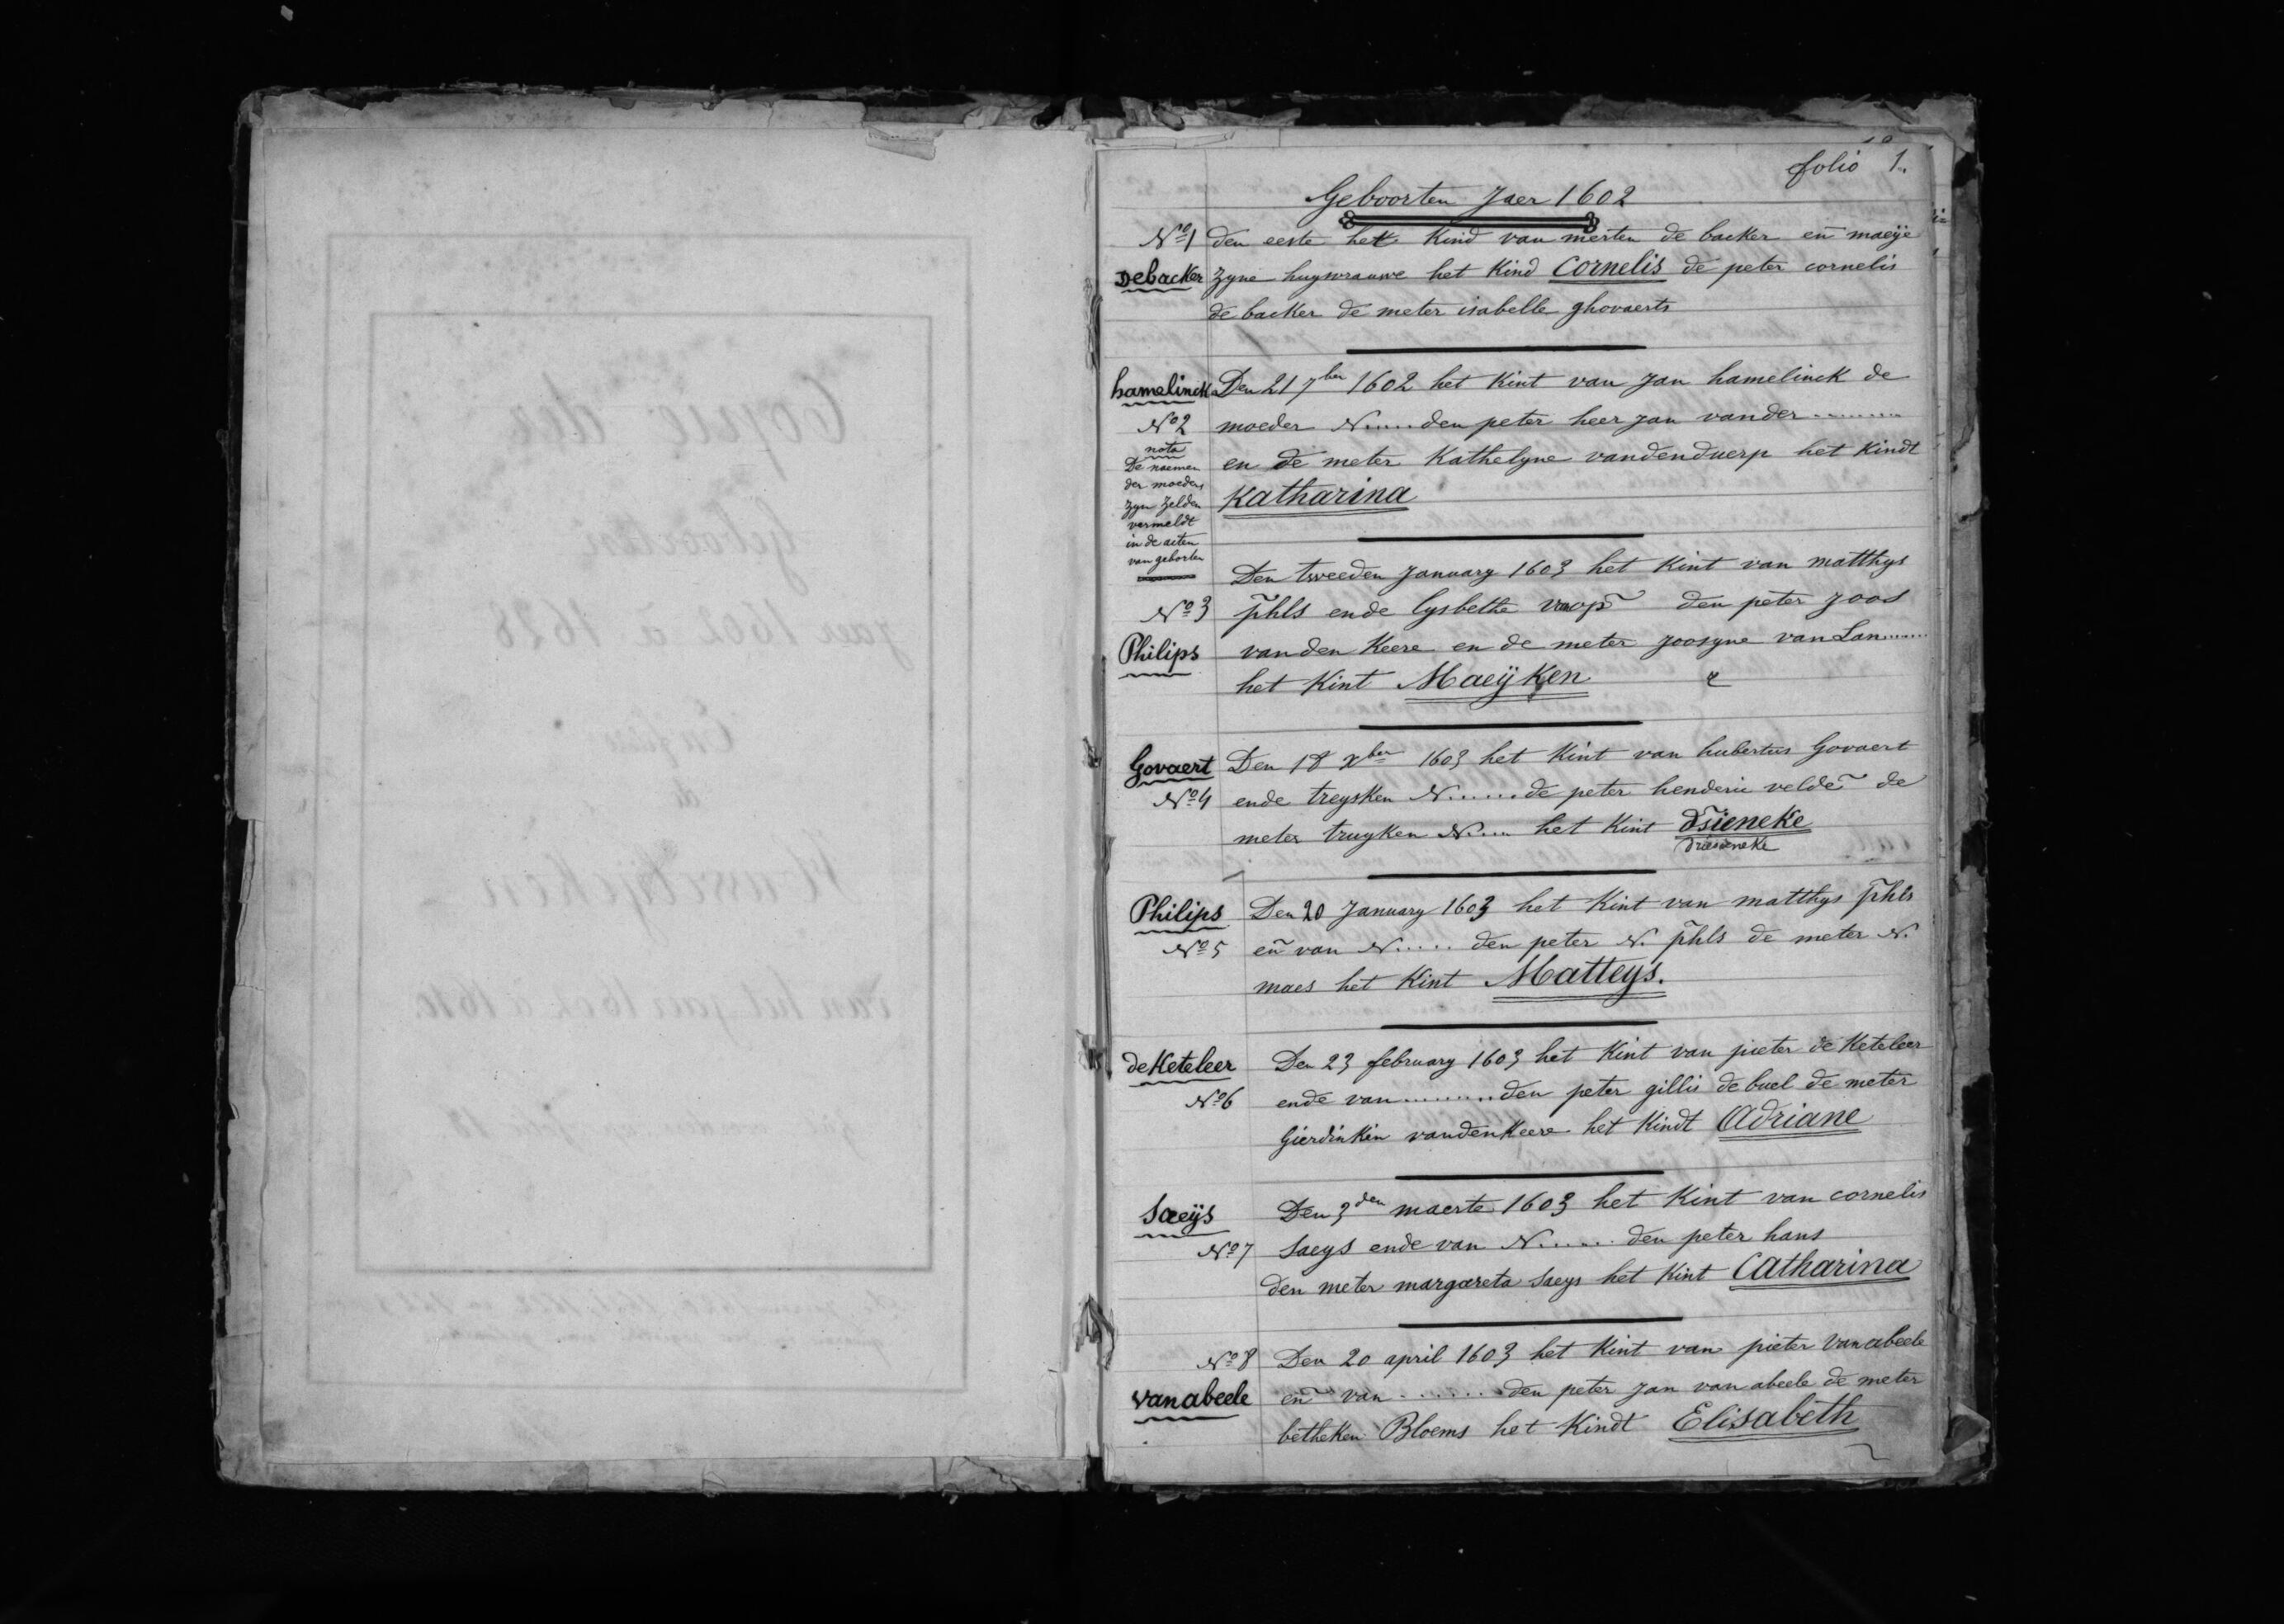 folio 1.
Geboorten Jaer 1602
Nº 1 den eeste het Kind van merten de backer eñ maeije
Debacker zyne huysvrauwe het Kind Cornelis de peter cornelis
de backer de meter isabelle ghovaerts
hamelinck Den 21 7ber 1602 het Kint van Jan hamelinck de
Nº 2 moeder N..... den peter heer Jan vander ..........
nota
De naemen
der moeders
zyn zelden
vermeldt
in de acten
van geborten
en de meter Kathelyne vandenduerp het Kindt
Katharina
Den tweeden January 1603 het Kint van matthys
Nº 3 p̃hls ende lysbethe den peter Joos
Philips vanden Keere en de meter Joosyne van Lan.......
het Kint Maeijken
Govaert Den 18 Xber 1603 het Kint van hubertus Govaert
Nº 4 ende treysken N....... de peter henderic velde~ de
meter truyken N.... het Kint dsieneke
driesieneke
Philips Den 20 January 1603 het Kint van matthys p̃hls
Nº 5 eñ van N..... den peter N. p̃hls de meter N.
maes het Kint Matteys.
de Keteleer Den 23 february 1603 het Kint van pieter de Keteleer
Nº 6 ende van .......... den peter gillis de buel de meter
Gierdinkin vandenKeere het Kindt Adriane
Saeijs Den 3den maerte 1603 het Kint van cornelis
Nº 7 Saeys ende van N....... den peter hans
den meter margareta Saeys het Kint Catharina
Nº 8 Den 20 april 1603 het Kint van pieter Vanabeele
Vanabeele eñ van ....... den peter Jan van abeele de meter
betheken Bloems het Kindt Elisabeth